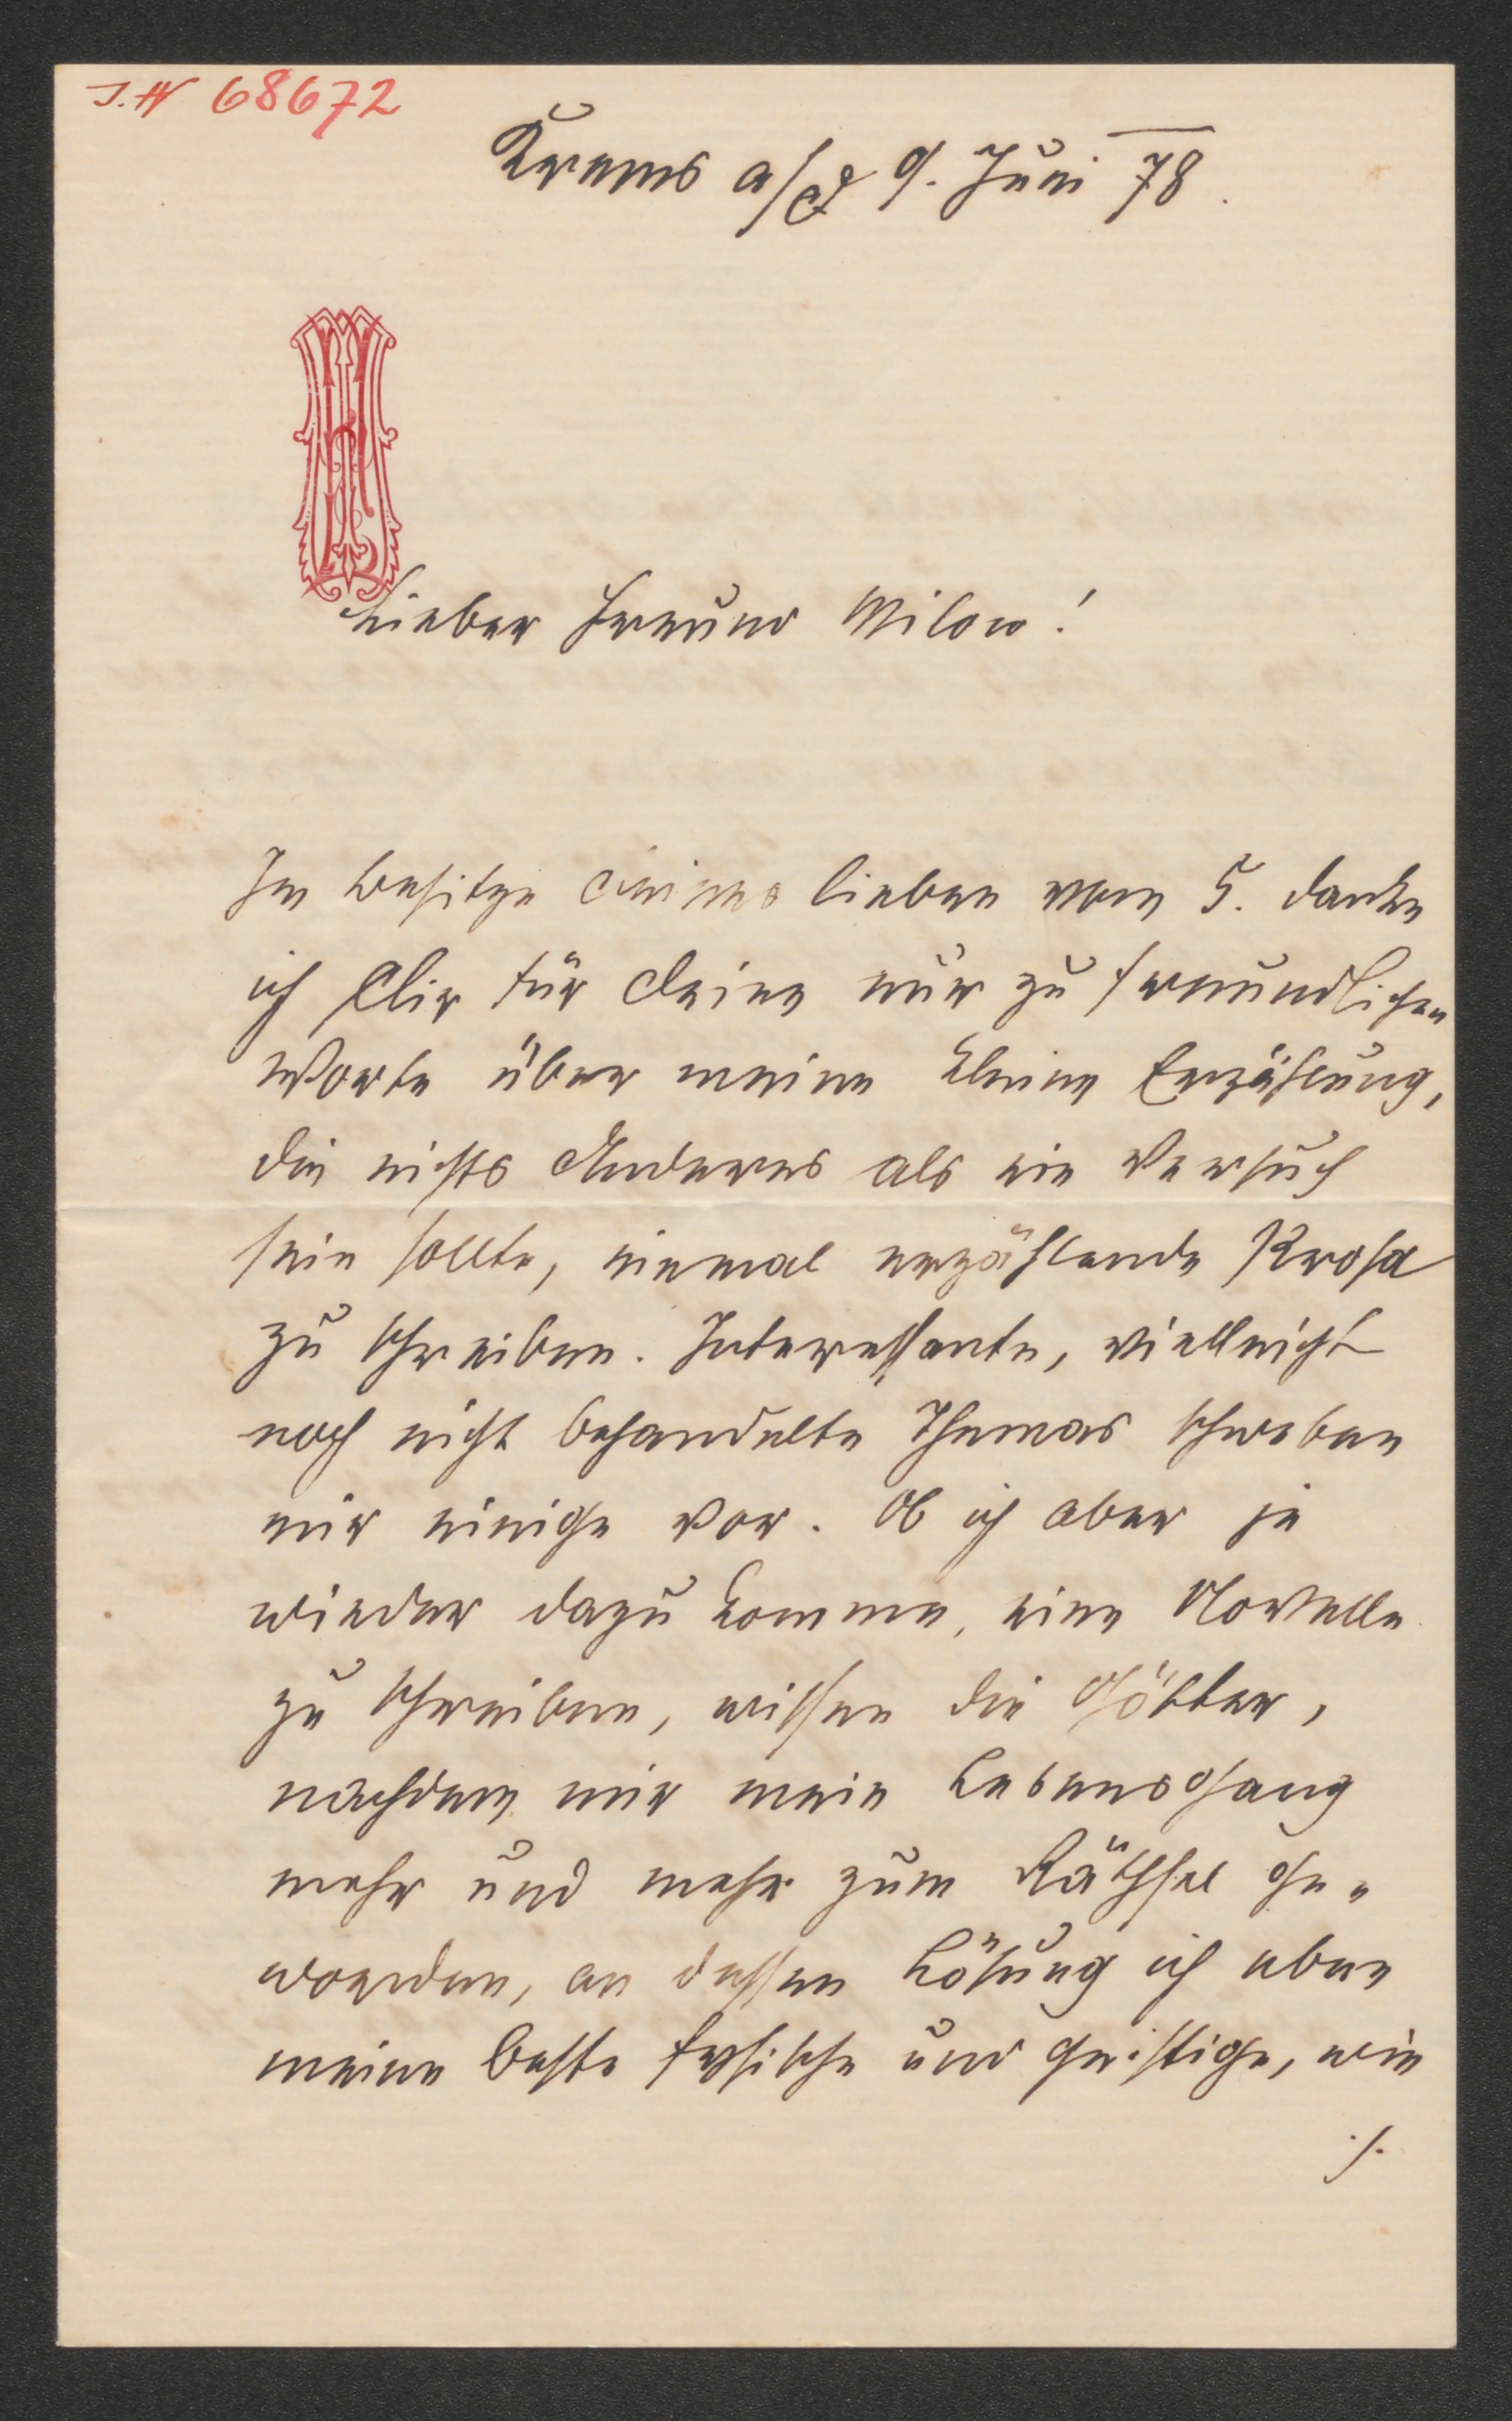 I.N 68672
Krems a/d 9. Juni 78.
Lieber Freund Milow!
Im Besitze Deines lieben vom 5. danke
ich Dir für Deine nur zu freundlichen
Worte über meine kleine Erzählung,
die nichts Anderes als ein Versuch
sein sollte, einmal erzählende Prosa
zu schreiben. Interessante, vielleicht
noch nicht behandelte Themas schweben
mir einige vor. Ob ich aber je
wieder dazu komme, eine Novelle
zu schreiben, wissen die Götter,
nachdem mir mein Lebensgang
mehr und mehr zum Räthsel ge-
worden, an dessen Lösung ich eben
meine beste fysische und geistige, wie
./.